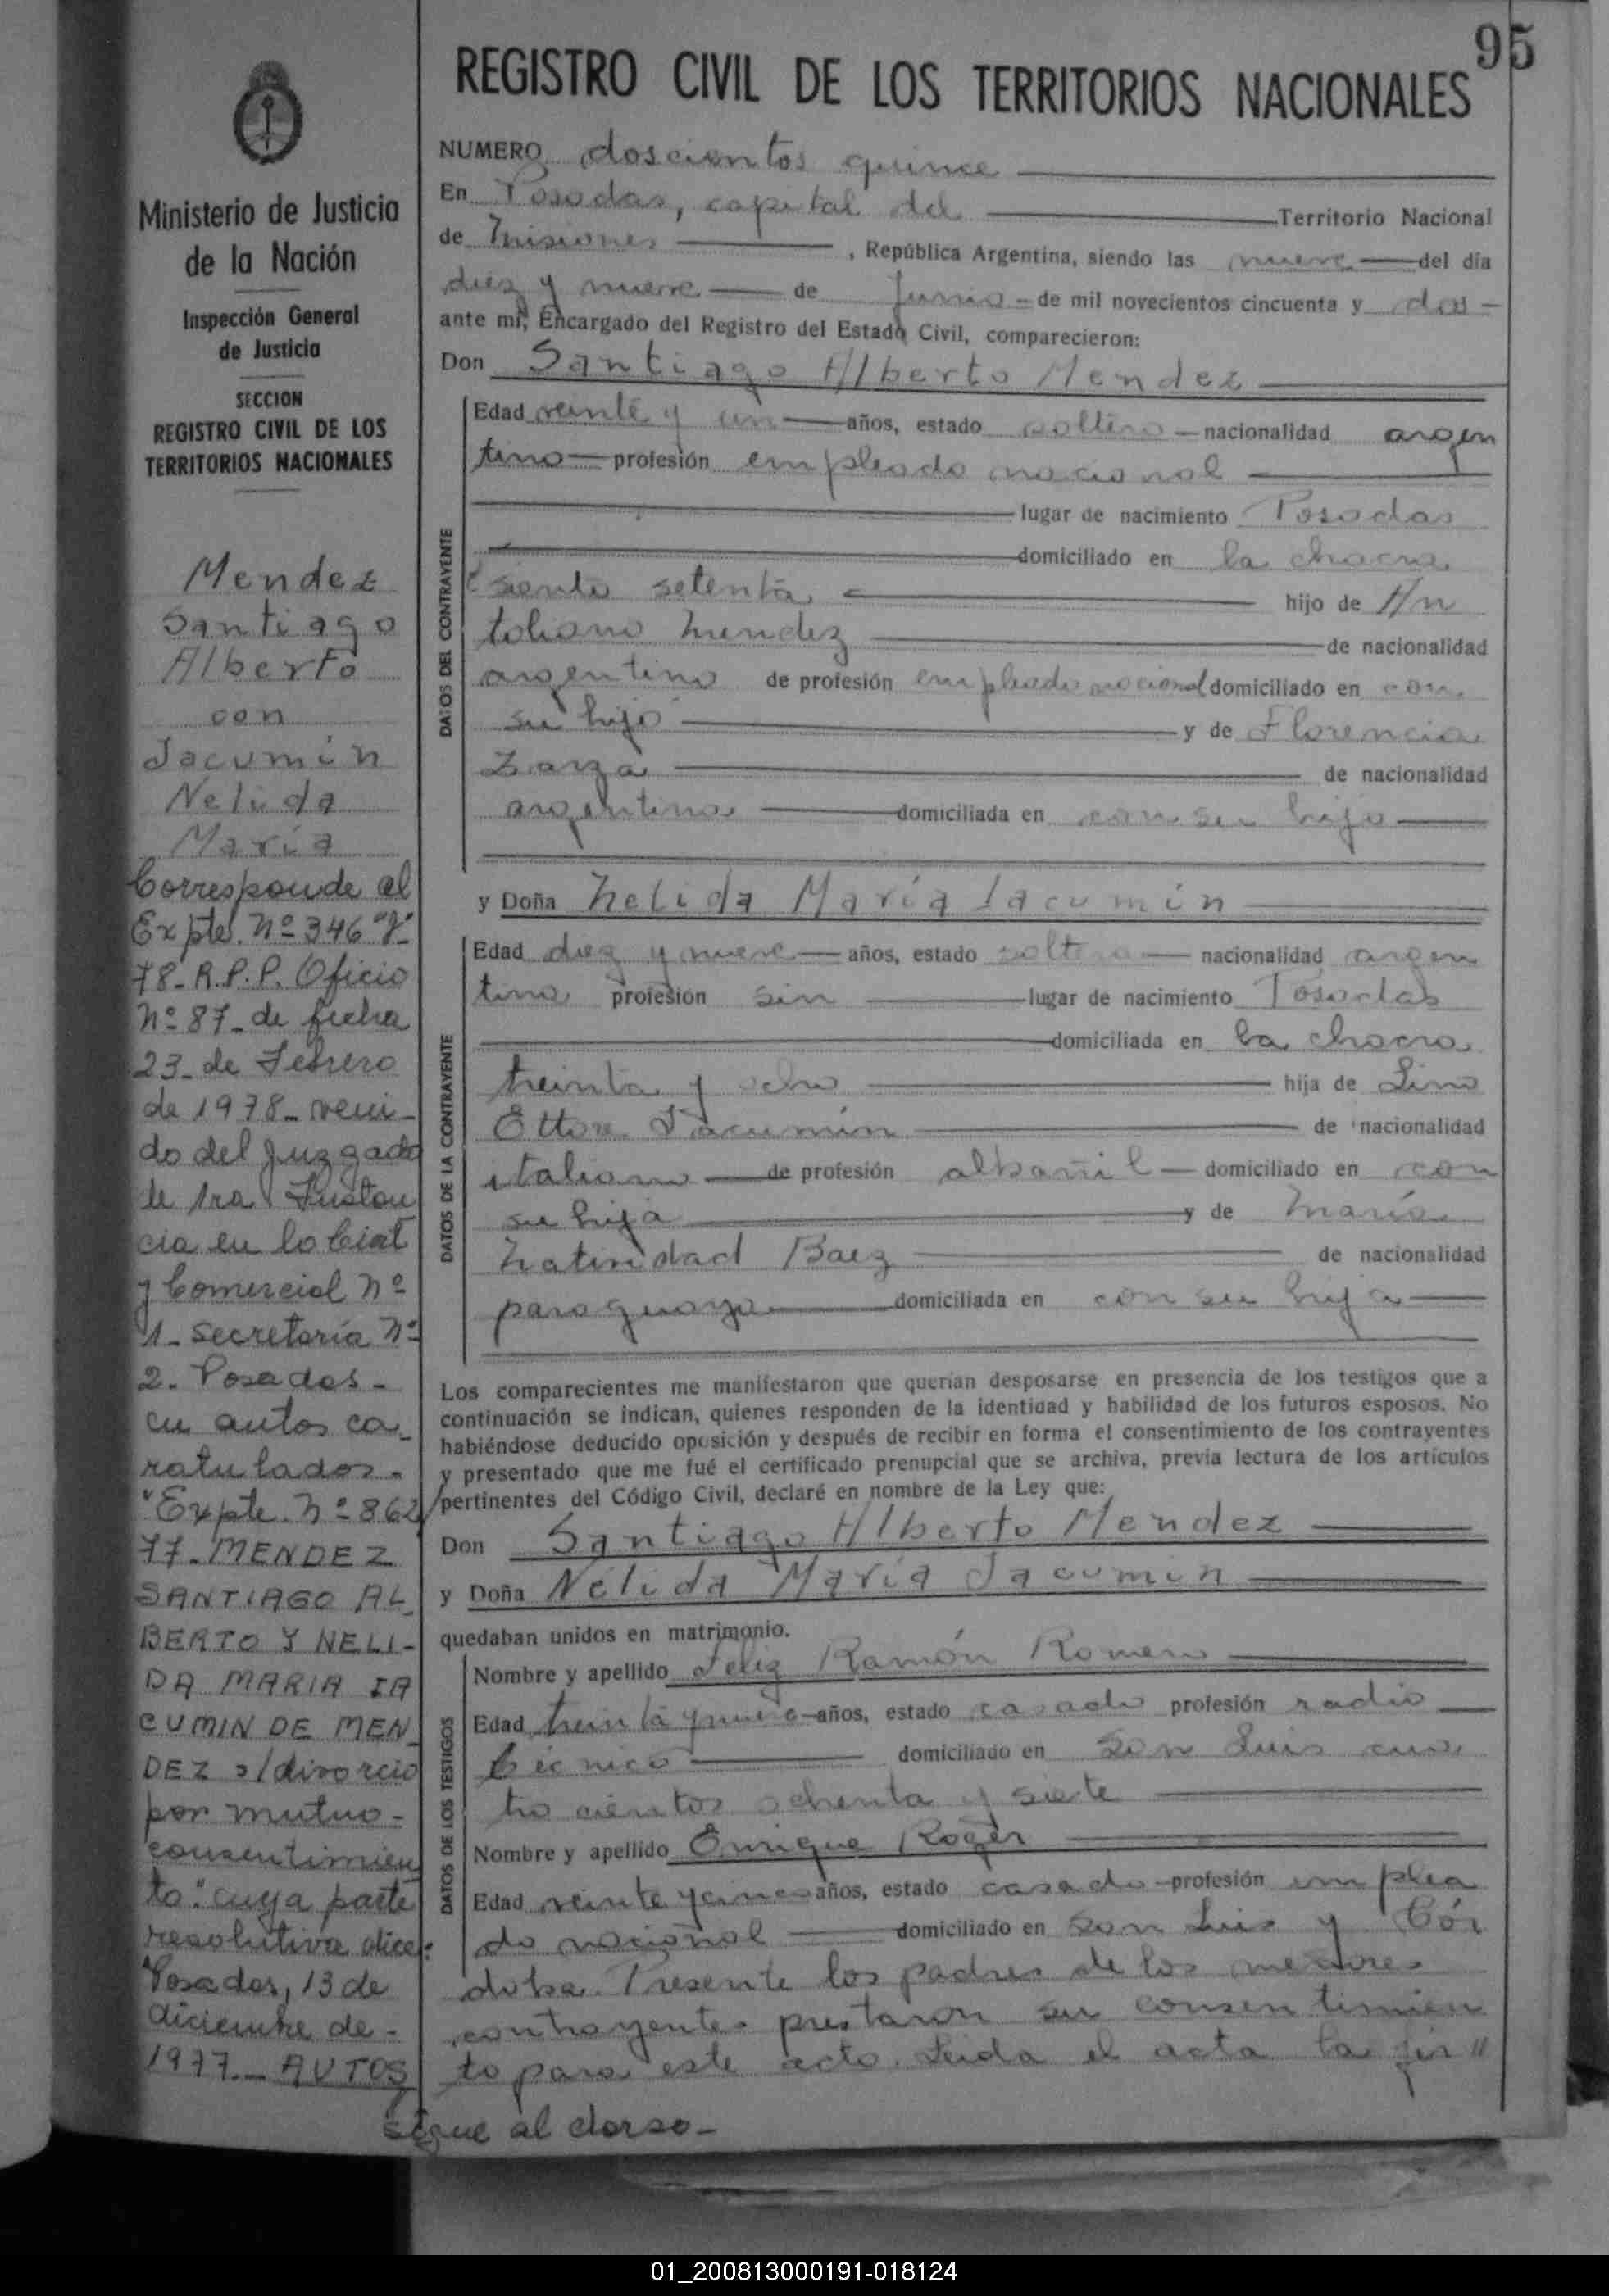 95
REGISTRO CIVIL DE LOS TERRITORIOS NACIONALES
Ministerio de Justicia
de la Nación
Inspección General
de Justicia
SECCION
REGISTRO CIVIL DE LOS
TERRITORIOS NACIONALES
Mendez
Santiago
Alberto
con
Jacumin
Nelida
María
Corresponde al
Expte. Nº 346 "J"-
78- R.P.P. Oficio
Nº 87- de fecha
23- de Febrero
de 1978- veni-
do del Juzgado
de 1ra Instan
cia en lo Civil
y Comercial Nº
1- Secretaría Nº
2- Posadas-
en autos ca-
ratulados-
"Expte. Nº 862/
77- MENDEZ
SANTIAGO AL-
BERTO Y NELI-
DA MARIA IA
CUMIN DE MEN-
DEZ s/divorcio
por mutuo-
consentimien
to" cuya parte
resolutiva dice:
"Posadas, 13 de
diciembre de-
1977.- AUTOS
sigue al dorso-
NUMERO doscientos quince
En Posadas, capital del Territorio Nacional
de Misiones, República Argentina, siendo las nueve del día
diez y nueve de Junio de mil novecientos cincuenta y dos-
ante mí, Encargado del Registro del Estado Civil, comparecieron:
Don Santiago Alberto Mendez
DATOS DEL CONTRAYENTE
Edad veinte y un años, estado soltero nacionalidad argen
tino profesión empleado nacional
lugar de nacimiento Posadas
domiciliado en la chacra
ciento setenta hijo de An
toliano Mendez de nacionalidad
argentino de profesión empleado nacional domiciliado en con
su hijo y de Florencia
Zarza de nacionalidad
argentina domiciliada en con su hijo
y Doña Nelida María Jacumin
DATOS DE LA CONTRAYENTE
Edad diez y nueve años, estado soltera nacionalidad argen
tina profesión sin lugar de nacimiento Posadas
domiciliada en la chacra
treinta y ocho hija de Lino
Ettore Jacumin de nacionalidad
italiano de profesión albañil domiciliado en con
su hija y de María
Natividad Baez de nacionalidad
paraguaya domiciliada en con su hija
Los comparecientes me manifestaron que querían desposarse en presencia de los testigos que a
continuación se indican, quienes responden de la identidad y habilidad de los futuros esposos. No
habiéndose deducido oposición y después de recibir en forma el consentimiento de los contrayentes
y presentado que me fué el certificado prenupcial que se archiva, previa lectura de los artículos
pertinentes del Código Civil, declaré en nombre de la Ley que:
Don Santiago Alberto Mendez
y Doña Nélida María Jacumin
quedaban unidos en matrimonio.
DATOS DE LOS TESTIGOS
Nombre y apellido Feliz Ramón Romero
Edad treinta y nueve años, estado casado profesión radio
técnico domiciliado en San Luis cua
tro cientos ochenta y siete
Nombre y apellido Enrique Roger
Edad veinte y cinco años, estado casado profesión emplea
do nacional domiciliado en San Luis y Cór
doba. Presente los padres de los menores
contrayentes prestaron su consentimien
to para este acto. Leida el acta la fir"
01_200813000191-018124